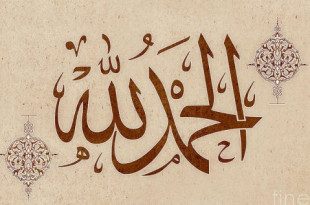 الحمد لله
fine